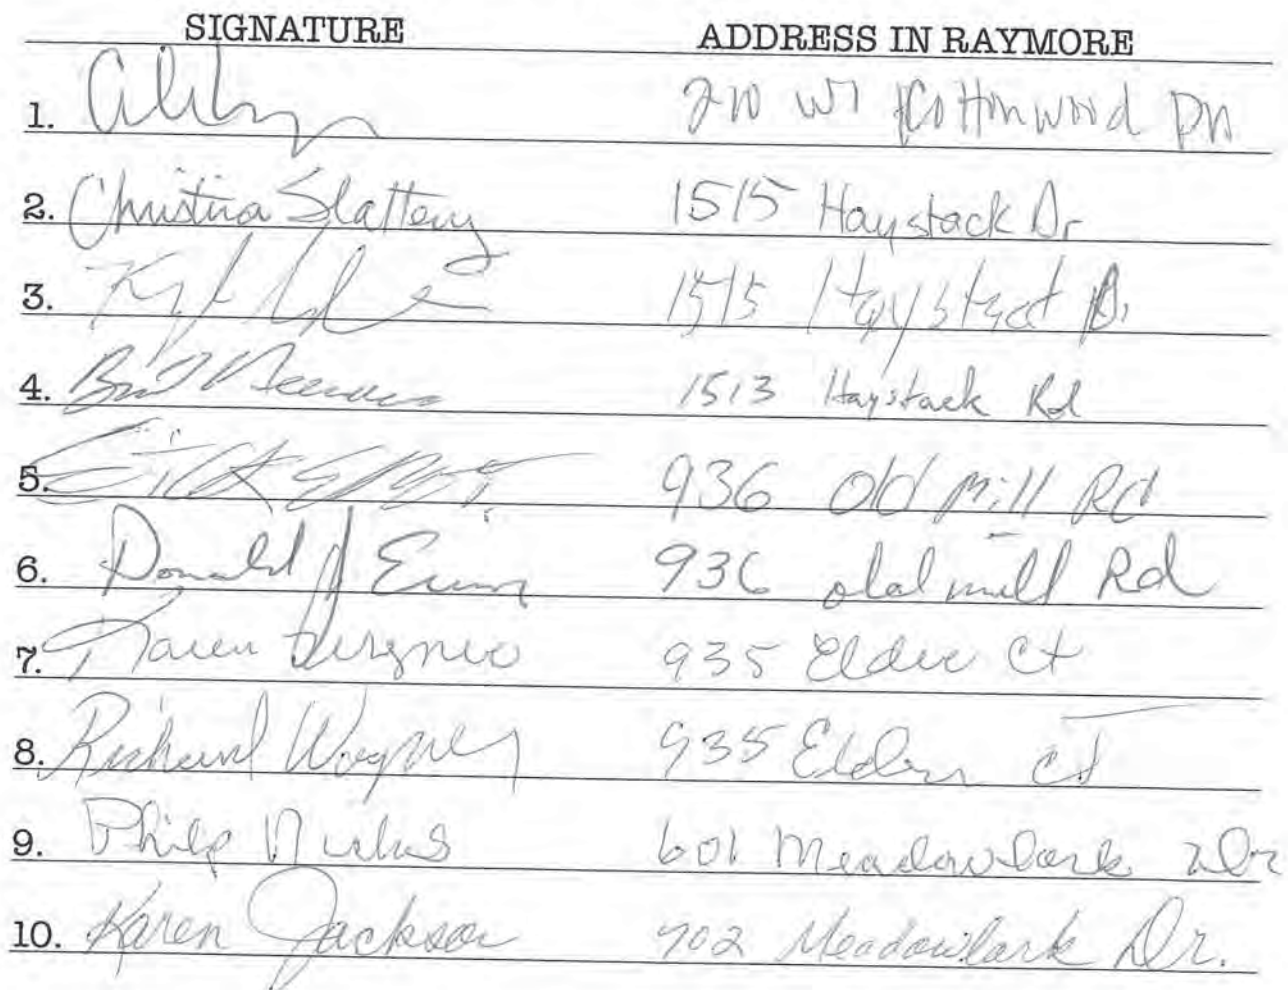 SIGNATURE ADDRESS IN RAYMORE
1. Cottonwood
2. Christina Slattery 1515 Haystack Dr
3. 1515 Haystack Dr
4. 1513 Haystack Rd
5. 936 Old Mill Rd
6. Donald J 936 old mill Rd
7. Karen 935 Ct
8. Richard Wagner 935 Elder ct
9. Philip 601 Meadowlark Dr
10. Karen Jackson 702 Meadowlark Dr.